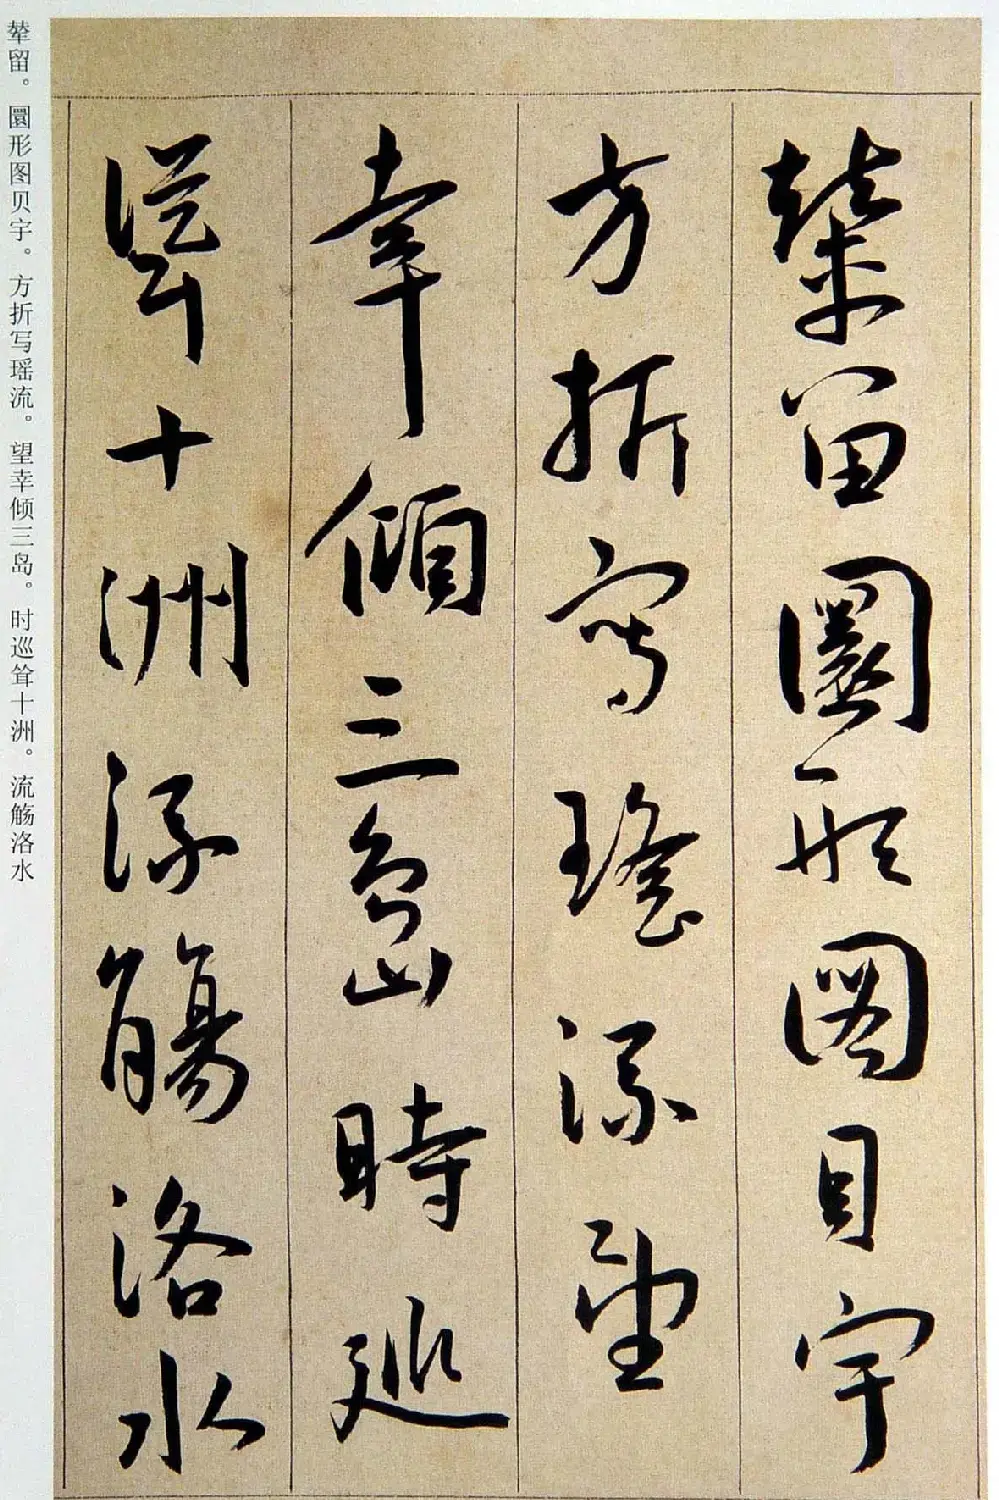 輦留圜形圖貝宇
方折寫瑤流望
幸傾三島時巡
聳十洲流觴洛水
辇留。圜形图贝宇。方折写瑶流。望幸倾三岛。时巡耸十洲。流觞洛水